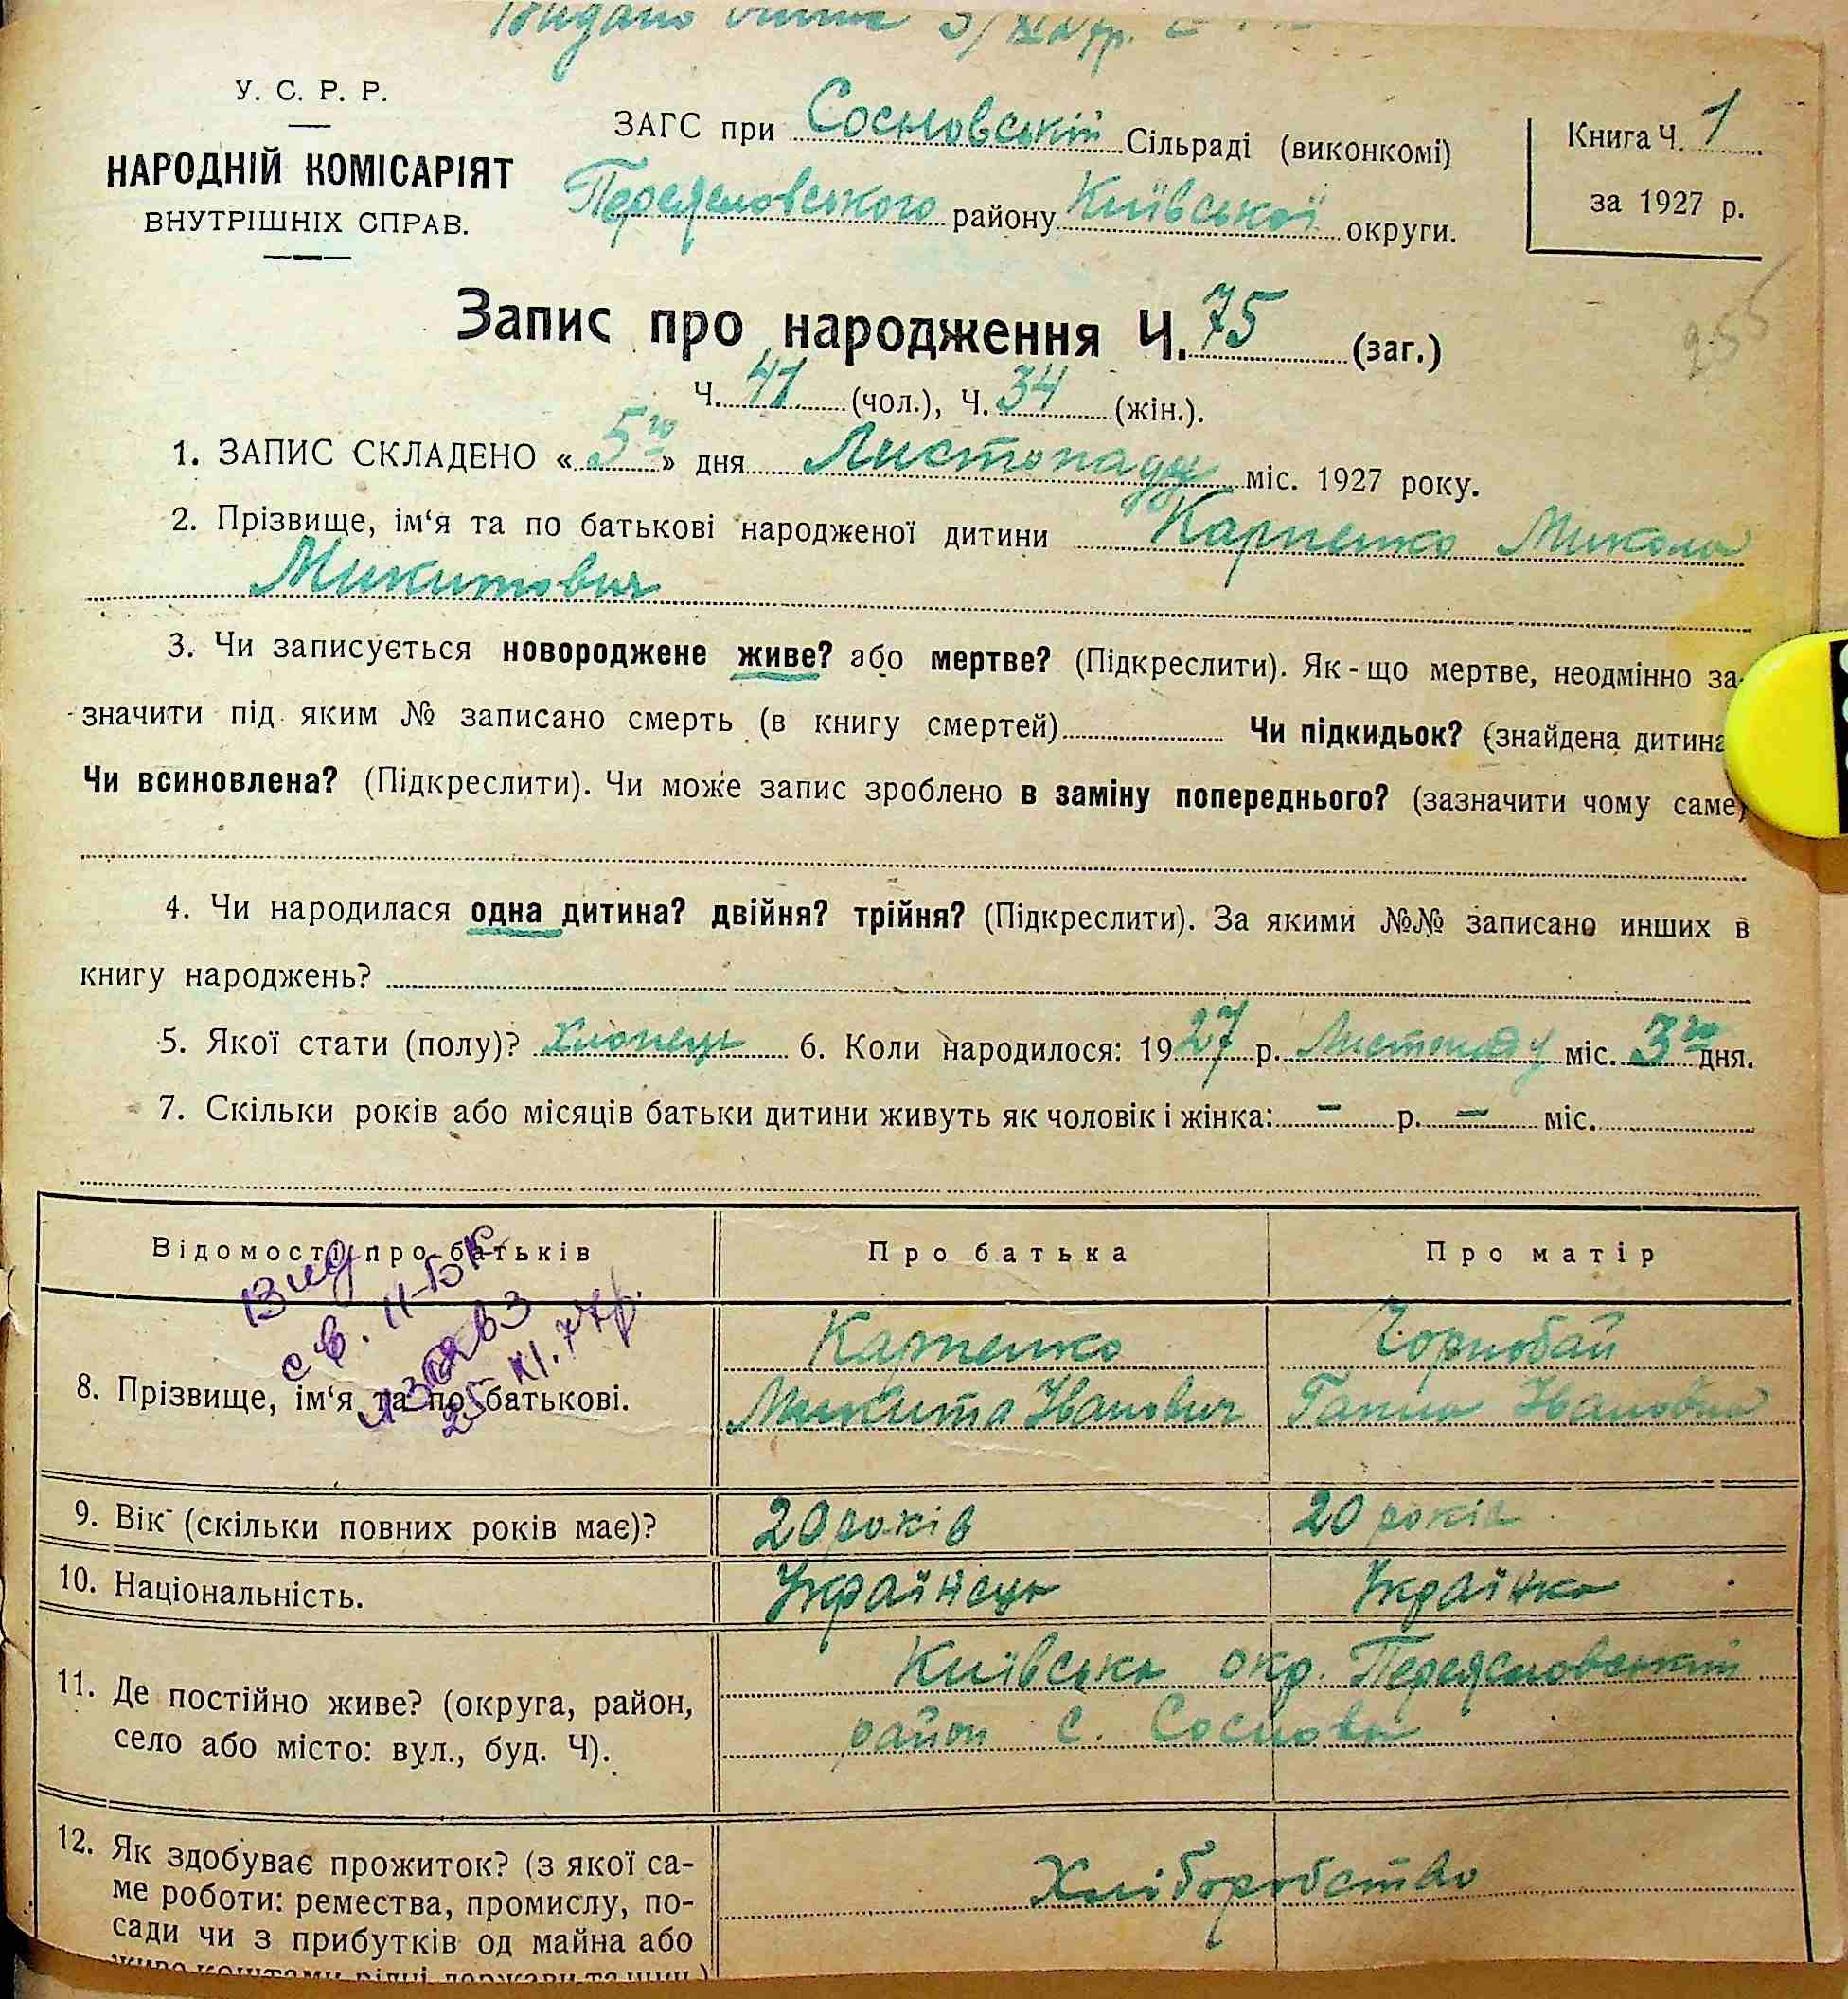 Видано
У. С. Р. Р.
НАРОДНІЙ КОМІСАРІЯТ
ВНУТРІШНІХ СПРАВ.
ЗАГС при Сосновській Сільраді (виконкомі)
Переяславського району Київської округи.
Книга Ч. 1
за 1927 р.
255
Запис про народження Ч. 75 (заг.)
Ч. 41 (чол.), Ч. 34 (жін.).
1. ЗАПИС СКЛАДЕНО «5го» дня Листопаду міс. 1927 року.
2. Прізвище, ім‘я та по батькові народженої дитини Карпенко Микола
Микитович
3. Чи записується новороджене живе? або мертве? (Підкреслити). Як-що мертве, неодмінно за-
значити під яким № записано смерть (в книгу смертей) Чи підкидьок? (знайдена дитина
Чи всиновлена? (Підкреслити). Чи може запис зроблено в заміну попереднього? (зазначити чому саме)
4. Чи народилася одна дитина? двійня? трійня? (Підкреслити). За якими №№ записано инших в
книгу народжень?
5. Якої стати (полу)? Хлопець 6. Коли народилося: 1927 р. Листопаду міс. 3го дня.
7. Скільки років або місяців батьки дитини живуть як чоловік і жінка: – р. – міс.
Відомості про батьків Про батька Про матір
Вид
св. II-БК
25 XI.77р.
Карпенко Чорнобай
8. Прізвище, ім‘я та по батькові. Микита Іванович Ганна Івановна
9. Вік (скільки повних років має)? 20 років 20 років
10. Національність. Українець Українка
11. Де постійно живе? (округа, район, Київська окр. Переяславський
село або місто: вул., буд. Ч). район с. Соснова
12. Як здобуває прожиток? (з якої са-
ме роботи: ремества, промислу, по- Хліборобство
сади чи з прибутків од майна або